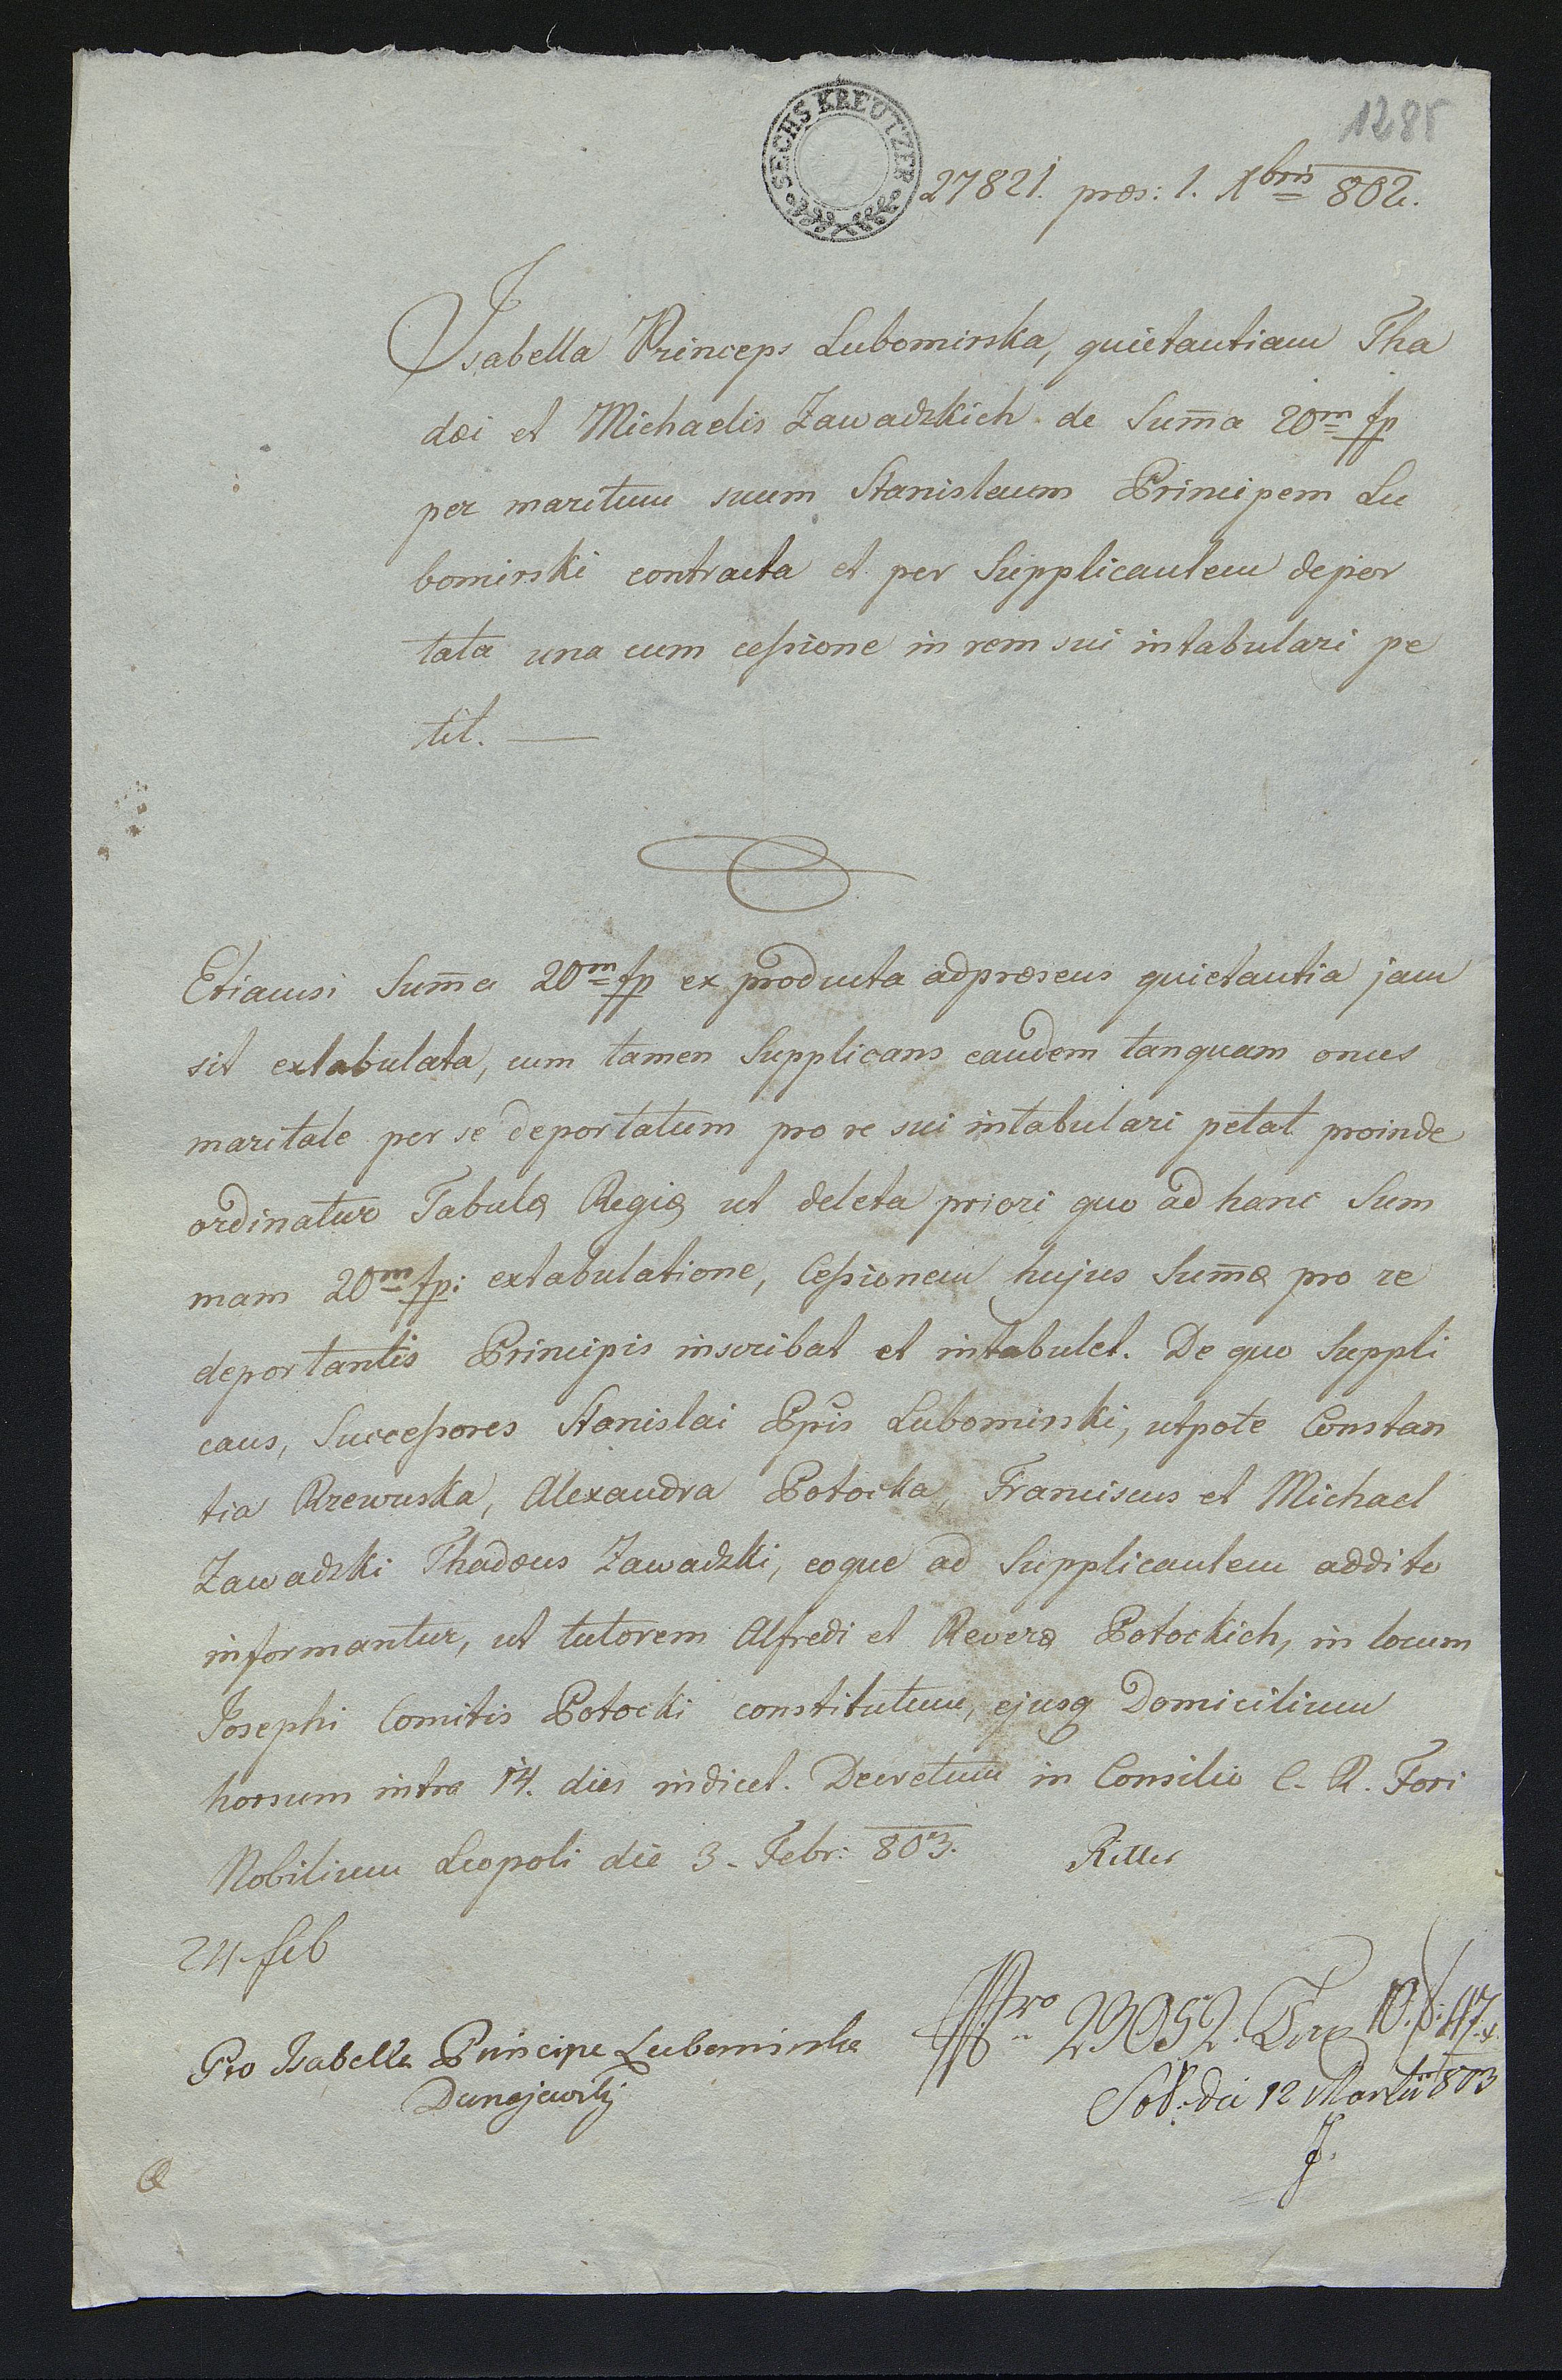 1285
SECHS KREUTZER
27821. præs: 1. Xbris 802.
Isabella Princeps Lubomirska, quietantiam Tha
dæi et Michaelis Zawadzkich de Summa 20m fp
per maritum suum Stanislaum Principem Lu
bomirski contracta et per Supplicantem depor
tata una cum cessione in rem sui intabulari pe
tit. —
Etiamsi Summa 20m fp ex producta adpræsens quietantia jam
sit extabulata, cum tamen Supplicans eandem tanquam onus
maritale per se deportatum pro re sui intabulari petat proinde
ordinatur Tabulæ Regiæ ut deleta priori quo ad hanc Sum
mam 20m fp: extabulatione, Cessionem hujus Summæ pro re
deportantis Principis inscribat et intabulet. De quo Suppli
cans, Successores Stanislai Ppis Lubomirski, utpote Constan
tia Rzewuska, Alexandra Potocka, Franciscus et Michael
Zawadzki Thadæus Zawadzki, eoque ad Supplicantem addito
informantur, ut tutorem Alfredi et Reveræ Potockich, in locum
Josephi Comitis Potocki constitutum, ejusq Domicilium
horsum intra 14. dies indicet. Decretum in Consilio C. R. Fori
Nobilium Leopoli die 3. Febr: 803. Ritter
24 feb
Pro Isabella Principe Lubomirska
Dunajewitz
Nro 23052. Taxa 10. f: 47. x.
Sol: die 12 Martii 803
J.